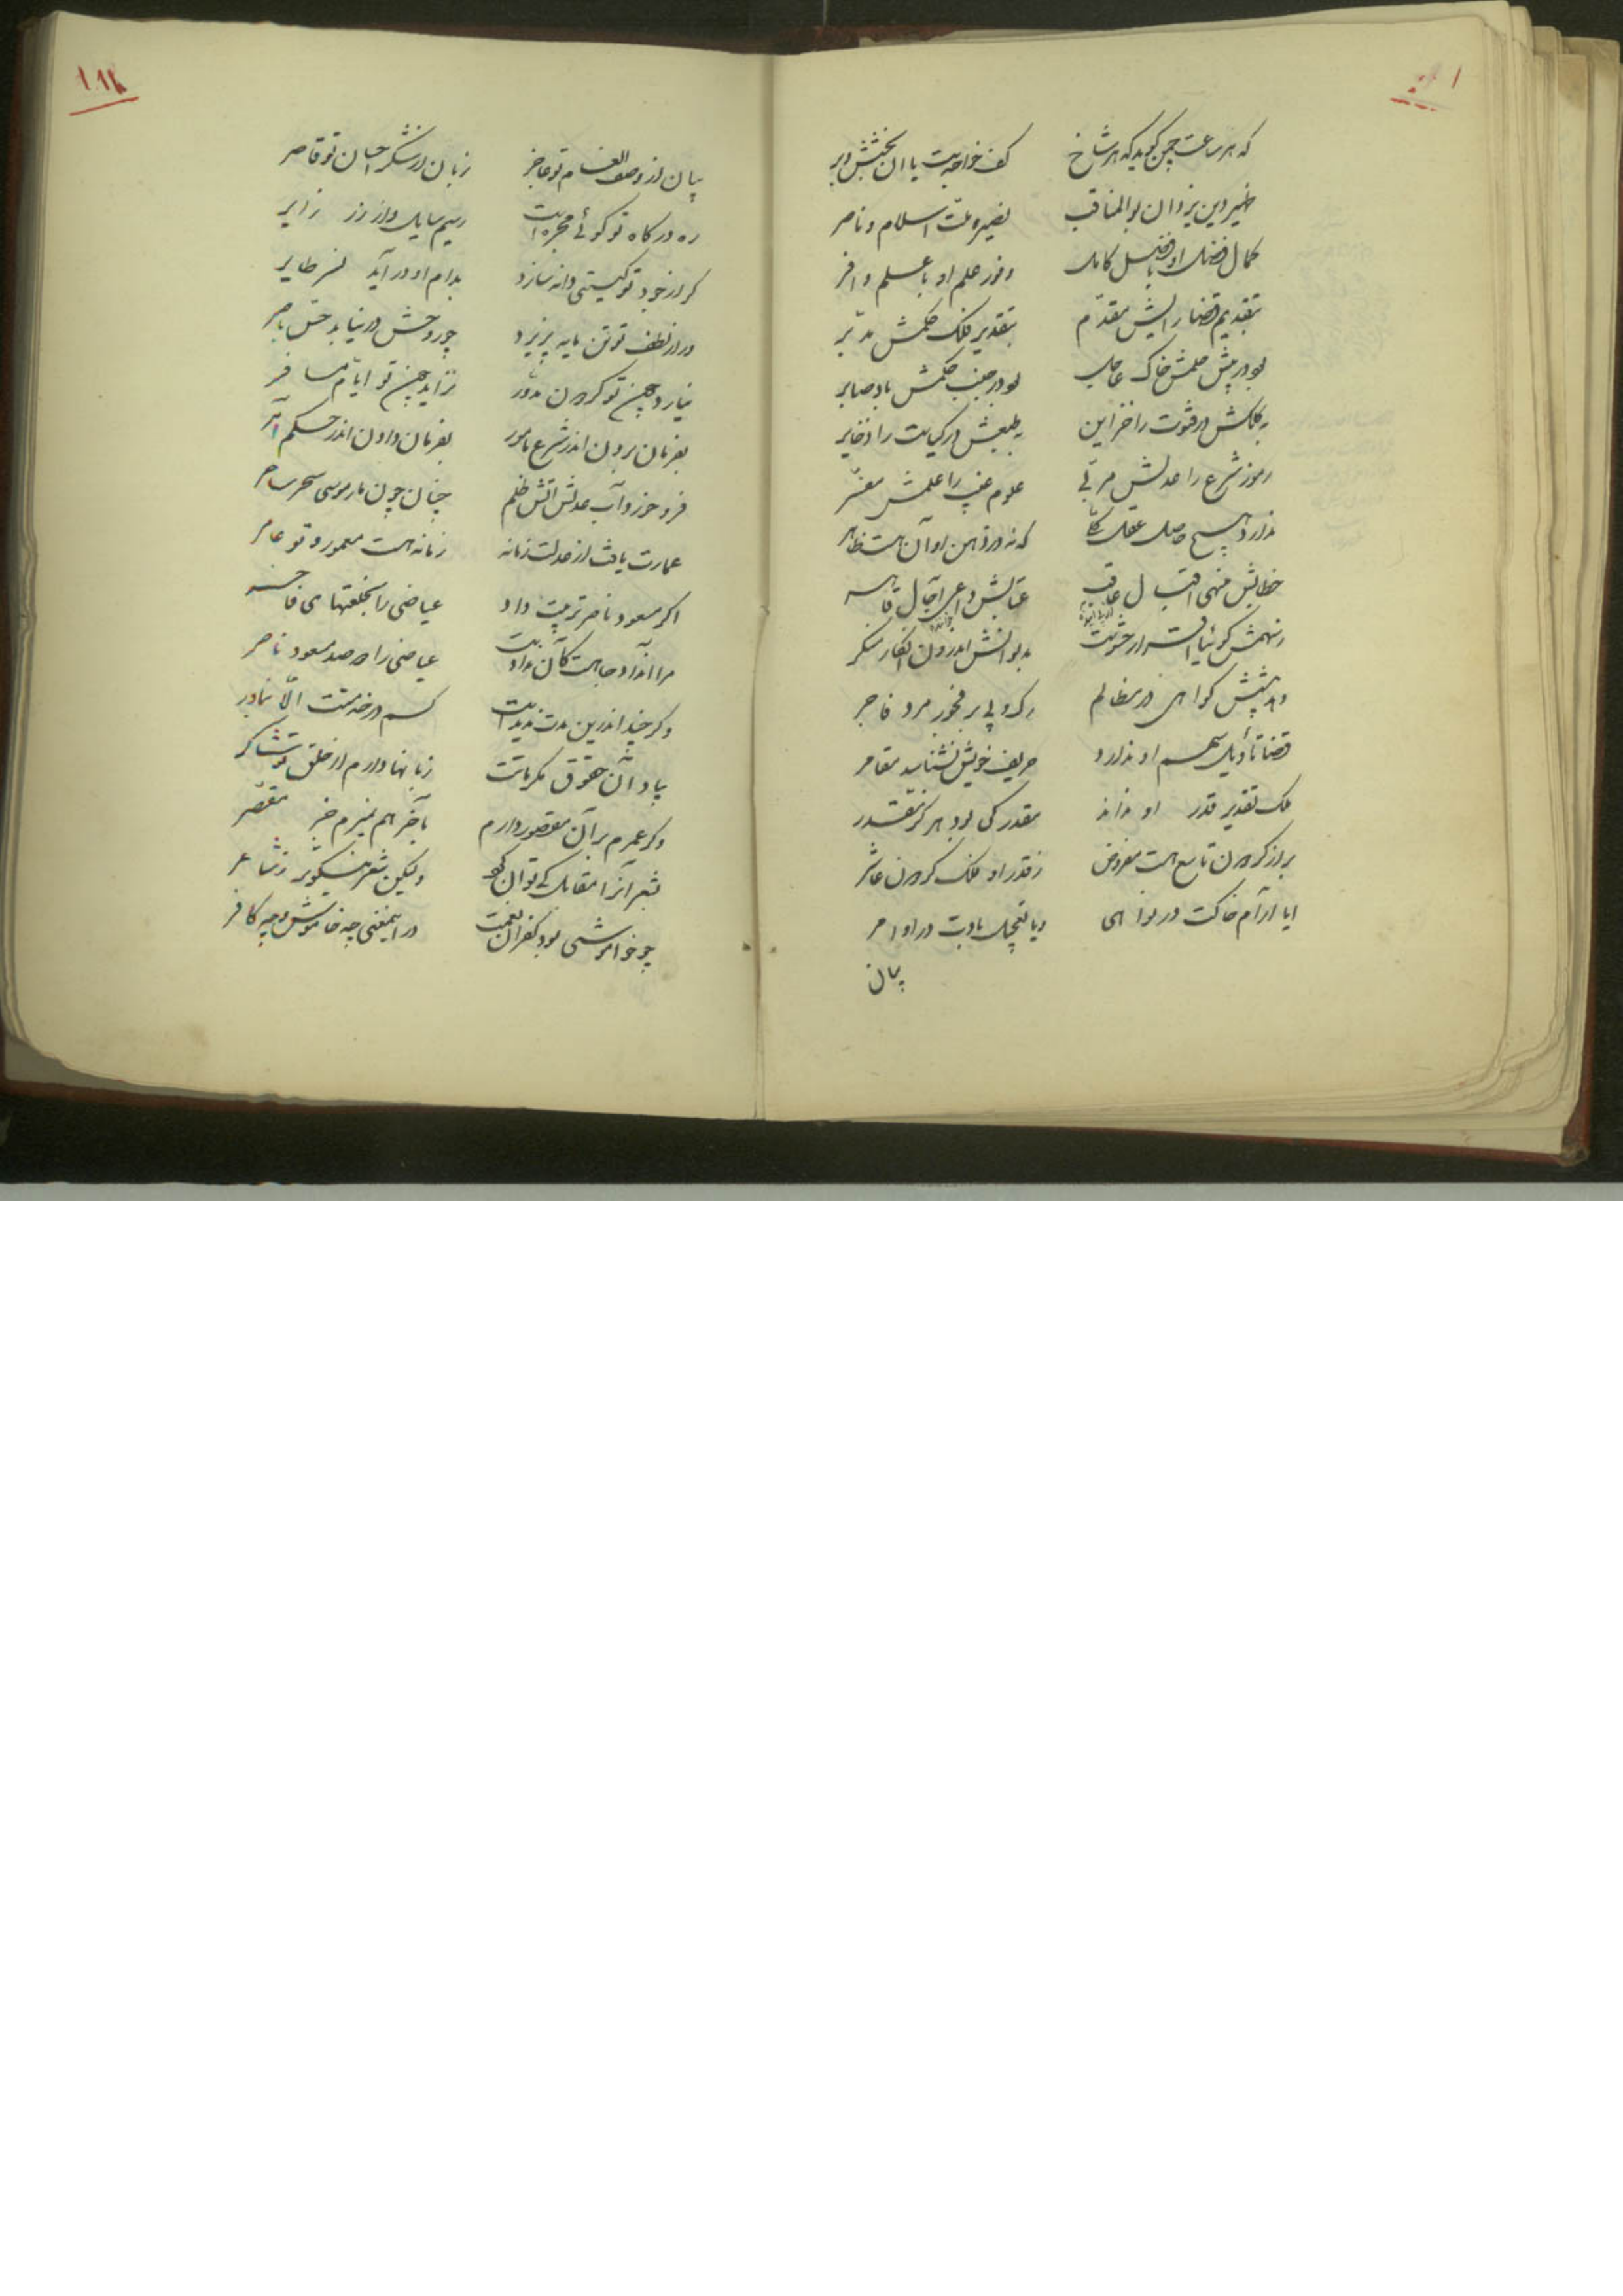 که هر ساعت چمن گوید که هر شاخ    کف خواجه‌ست یا ان بخشش وبر
ظهیر دین یزدان بوالمناقب    نصیر ملت اسلام و ناصر
کمال فضل او با فضل کامل    وفور علم او با علم وافر
بتقدیم قضا رایش مقدم    بتقدیر فلک حکمش مدبر
بود در پیش حلمش خاک عاجل    بود در جنب حکمش باد صابر
به کلکش در فتوت را خزاین    به طبعش در کیاست را ذخایر
رموز شرع را عدلش مربی    علوم غیب را علمش مفسر
ندارد هیچ حاصل عقل کلی    که نه در ذهن او آن هست ظاهر
خطابش منهی اقبال عاقب    عتابش داعی آجال قاهر
دهد پیشش گواهی در مظالم    رگ و پی بر فجور مرد فاجر
قضا تأویل سهم او ندارد    حریف خویش نشناسد مقامر
ملک تقدیر قدر او نداند    مقدر کی بود هرگز مقدر
براز گردون تاسع هست مفروض    ز قدر او فلک گردون عاشر
ایا آرام خاکت در نواهی    ویا تعجیل بادت در اوامر
بیان
بیان از وصف انعام تو عاجز    زبان از شکر احسان تو قاصر
ره درگاه تو گوئی مجره‌ست    ز سیم سایل و از زر زایر
گر از خود تو گیتی دانه سازد    بدام او در آید نسر طایر
ور از لطف تو تن مایه پزیرد    چو روحش در نیابد حس باصر
نیارد چون تو گردون مدور    نزاید چون تو ایام مسافر
بفرمان بردن اندر شرع مامور    بفرمان دادن اندر حکم آمر
فرو خورد آب عدلش آتش ظلم    چنان چون مار موسی سحر ساحر
عمارت یافت از عدلت زمانه    زمانه هست معمور و تو عامر
اگر مسعود ناصر تربیت داد    عیاضی را بخلعتهای فاخر
مرا آن داد جاهت کان ندادست    عیاضی را دو صد مسعود ناصر
وگر چند اندرین مدت ندیدست    کسم در خدمتت الا بنادر
بیاد آن حقوق مکرماتت    زبانها دارم از خلق تو شاکر
وگر عمرم بر آن مقصور دارم    بآخر هم نمیرم جز مقصر
بشعر آنرا مقابل کی توان کرد    ولیکن شعر نیکوتر ز شاعر
چو خواموشی بود کفران نعمت    در اینمعنی چه خاموش و چه کافر